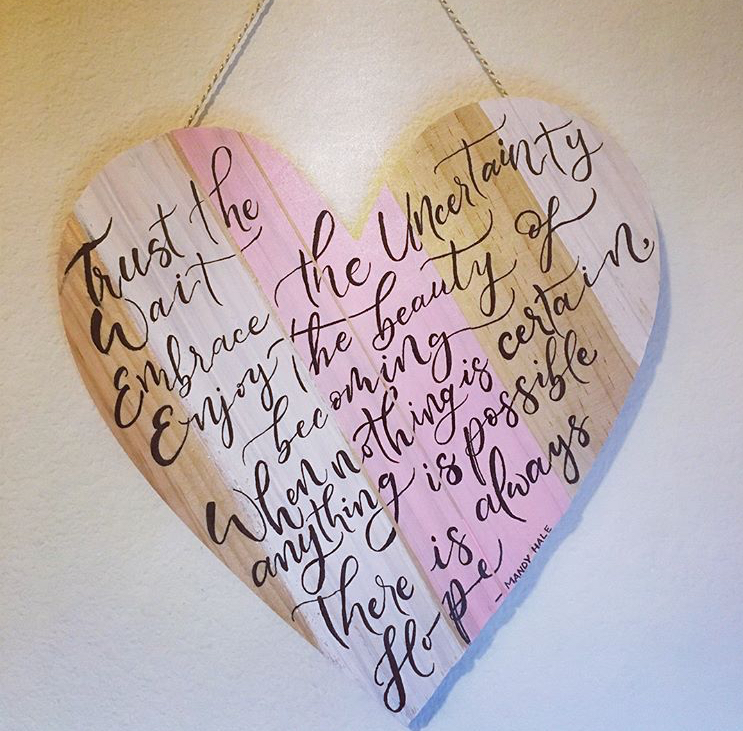 Trust the
Wait
Embrace the Uncertainty
Enjoy the beauty of
becoming
When nothing is certain,
anything is possible
There is always
Hope
- MANDY HALE